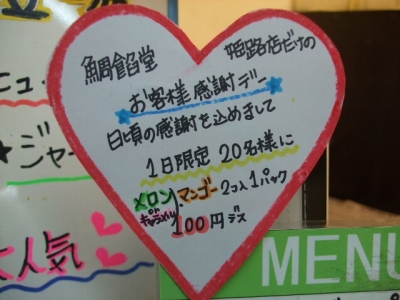 鯛餡堂
姫路店だけの
お客様感謝デー
日頃の感謝を込めまして
1日限定 20名様に
メロン マンゴー 2コ入1パック
or
100円デス
MENU
ニュ
ジャ
大人気